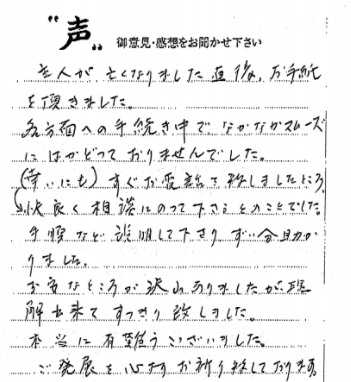 “声„ 御意見・感想をお聞かせ下さい
主人が亡くなりました直後、お手紙
を頂きました。
各方面への手続き中でなかなかスムーズ
にはかどっておりませんでした。
(幸いにも)すぐお電話を致しましたところ、
快良く相談にのって下さるとのことでした。
手順など説明して下さり ずい分助か
りました。
不安なところが沢山ありましたが理
解出来てすっきり致しました。
本当に有難うございました。
ご発展を心よりお祈り致しております。